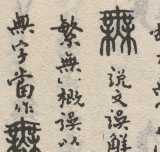 𣞤說文誤解
繁無概誤以
無字當作𣞤